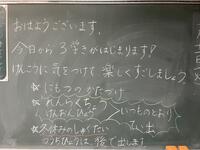 おはようございます。
今日から3学きがはじまります!
けんこうに気をつけて楽しくすごしましょう。
☆にもつのかたづけ
☆れんらくちょう
けんおんひょう
いつものとおり
☆冬休みのしゅくだい
つうちひょうは後で出します